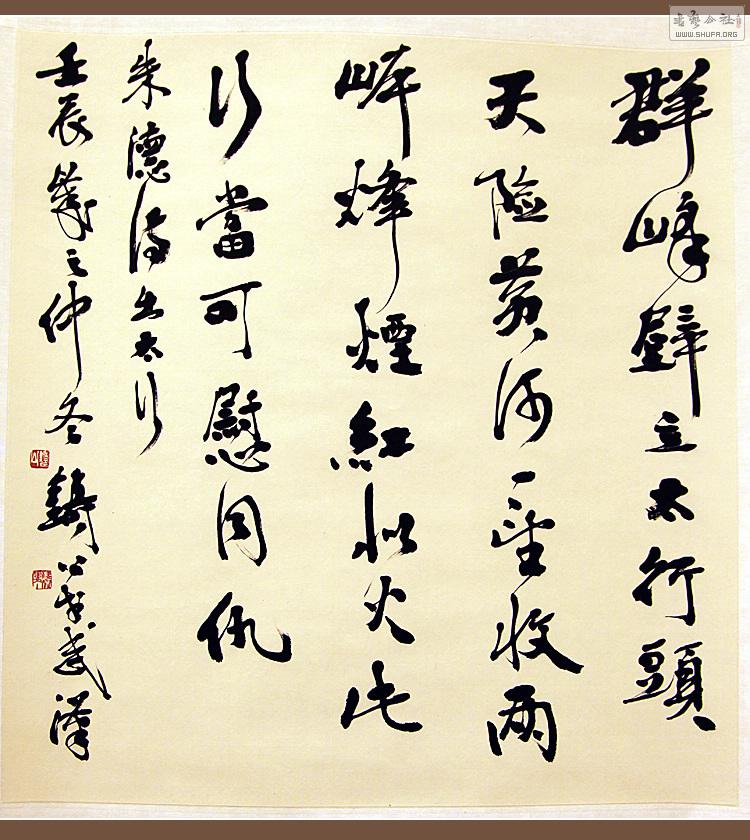 群峰壁立太行頭
天險黄河一望收兩
岸烽煙紅似火此
行當可慰同仇
朱德詩出太行
壬辰歲之仲冬 公於武漢
書藝公社
WWW.SHUFA.ORG